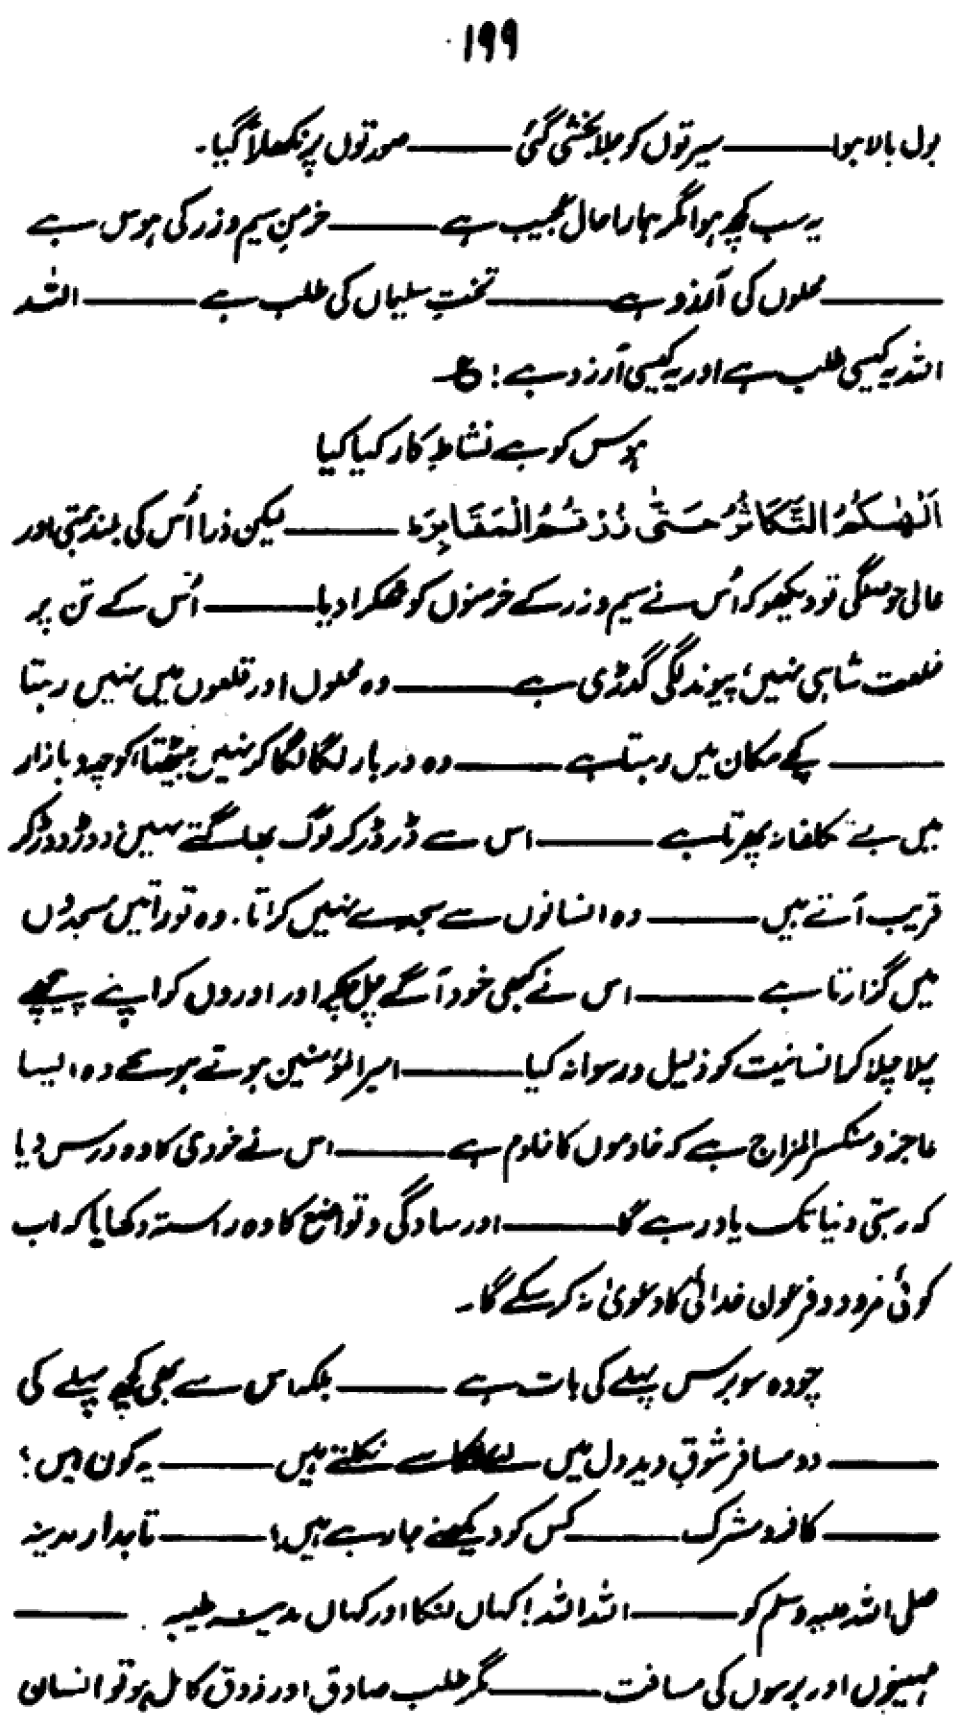 ۱۹۹
بول بالا ہوا ——— سیرتوں کو جلا بخشی گئی ——— صورتوں پر نکھار آ گیا۔
یہ سب کچھ ہوا مگر ہمارا حال عجیب ہے ——— خرمنِ سیم و زر کی ہوس ہے
——— محلوں کی آرزو ہے ——— تختِ سلیماں کی طلب ہے ——— اللہ
اللہ یہ کیسی طلب ہے اور یہ کیسی آرزو ہے! ع
ہوس کو ہے نشاطِ کار کیا کیا
اَلْهٰىكُمُ التَّكَاثُرُ حَتّٰى زُرْتُمُ الْمَقَابِرَ ط ——— لیکن ذرا اُس کی بلند ہمتی اور
عالی حوصلگی تو دیکھو کہ اُس نے سیم و زر کے خرمنوں کو ٹھکرا دیا ——— اُس کے تن پر
خلعت شاہی نہیں، پیوند لگی گدڑی ہے ——— وہ محلوں اور قلعوں میں نہیں رہتا
——— کچے مکان میں رہتا ہے ——— وہ دربار لگا لگا کر نہیں بیٹھتا، کوچہ و بازار
میں بے تکلفانہ پھرتا ہے ——— اس سے ڈر ڈر کر لوگ بھاگتے نہیں، دوڑ دوڑ کر
قریب آتے ہیں ——— وہ انسانوں سے سجدے نہیں کراتا۔ وہ تو راتیں سجدوں
میں گزارتا ہے ——— اس نے کبھی خود آگے چل کے اور اوروں کو اپنے پیچھے
چلا چلا کر انسانیت کو ذلیل و رسوا نہ کیا ——— امیر المؤمنین ہوتے ہوئے وہ ایسا
عاجز و منکسر المزاج ہے کہ خادموں کا خادم ہے ——— اس نے خودی کا وہ درس دیا
کہ رہتی دنیا تک یاد رہے گا ——— اور سادگی و تواضع کا وہ راستہ دکھایا کہ اب
کوئی نمرود و فرعون خدائی کا دعویٰ نہ کر سکے گا۔
چودہ سو برس پہلے کی بات ہے ——— بلکہ اس سے بھی کچھ پہلے کی
——— دو مسافر شوقِ دید دل میں لئے لنکا سے نکلتے ہیں ——— یہ کون ہیں؟
——— کافر و مشرک ——— کس کو دیکھنے جا رہے ہیں؟ ——— تاجدار مدینہ
صلی اللہ علیہ وسلم کو ——— اللہ اللہ! کہاں لنکا اور کہاں مدینہ طیبہ ———
مہینوں اور برسوں کی مسافت ——— مگر طلب صادق اور ذوق کامل ہو تو انسان